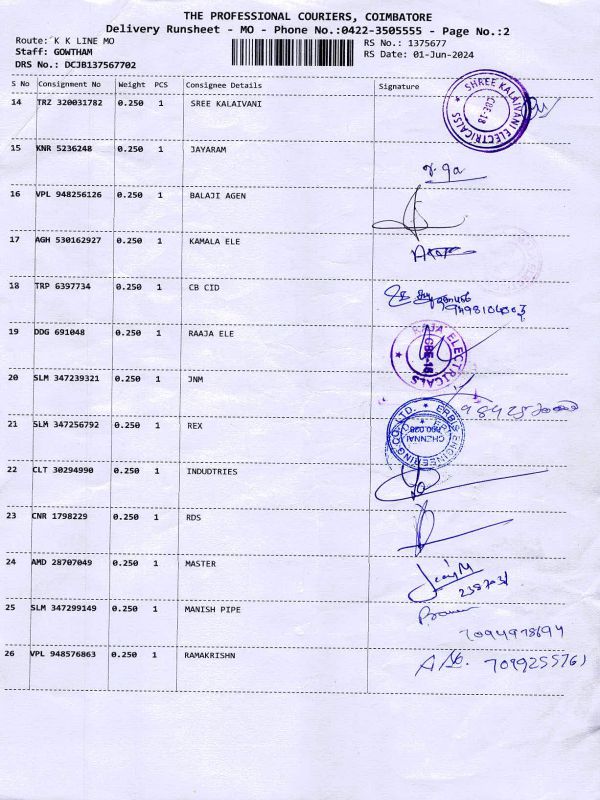 THE PROFESSIONAL COURIERS, COIMBATORE
Delivery Runsheet - MO - Phone No.:0422-3505555 - Page No.:2
Route: K K LINE MO
RS No.: 1375677
Staff: GOWTHAM
RS Date: 01-Jun-2024
DRS No.: DCJB137567702
S No Consignment No Weight PCS Consignee Details Signature
14 TRZ 320031782 0.250 1 SREE KALAIVANI
SHREE KALAIVANI ELECTRICALSS
CBE-18
15 KNR 5236248 0.250 1 JAYARAM
16 VPL 948256126 0.250 1 BALAJI AGEN
17 AGH 530162927 0.250 1 KAMALA ELE
18 TRP 6397734 0.250 1 CB CID
19 DDG 691048 0.250 1 RAAJA ELE
RAJA ELECTRICALS
CBE-18
20 SLM 347239321 0.250 1 JNM
21 SLM 347256792 0.250 1 REX
ERBIS ENGINEERING CO. LTD.
CHENNAI
600.028
22 CLT 30294990 0.250 1 INDUDTRIES
23 CNR 1798229 0.250 1 RDS
24 AMD 28707049 0.250 1 MASTER
25 SLM 347299149 0.250 1 MANISH PIPE
7094978694
26 VPL 948576863 0.250 1 RAMAKRISHN
7099255761